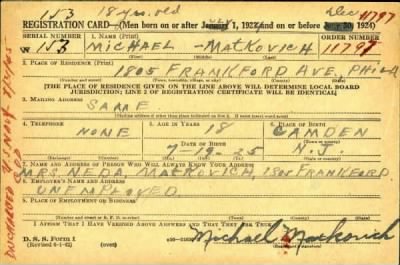 153 18 yrs. old Dec 11797
REGISTRATION CARD—(Men born on or after January 1, 1922 and on or before June 30, 1924)
SERIAL NUMBER 1. NAME (Print) ORDER NUMBER
W 153 MICHAEL - MATKOVICH 11797
(First) (Middle) (Last)
2. PLACE OF RESIDENCE (Print)
1805 FRANKFORD AVE. PHILA
(Number and street) (Town, township, village, or city) (County) (State)
[THE PLACE OF RESIDENCE GIVEN ON THE LINE ABOVE WILL DETERMINE LOCAL BOARD
JURISDICTION; LINE 2 OF REGISTRATION CERTIFICATE WILL BE IDENTICAL]
3. MAILING ADDRESS
SAME
4. TELEPHONE 5. AGE IN YEARS 6. PLACE OF BIRTH
NONE 18 CAMDEN
DATE OF BIRTH
7-19-25 N.J.
7. NAME AND ADDRESS OF PERSON WHO WILL ALWAYS KNOW YOUR ADDRESS
MRS. NEDA, MATKOVICH, 1805 FRANKFORD
8. EMPLOYER'S NAME AND ADDRESS
UNEMPLOYED.
9. PLACE OF EMPLOYMENT OR BUSINESS
(Number and street or R. F. D. number) (Town) (County) (State)
I AFFIRM THAT I HAVE VERIFIED ABOVE ANSWERS AND THAT THEY ARE TRUE.
D. S. S. Form 1
(Revised 6-1-42) (over)
Michael Matkovich
DISCHARGED U.S. NAVY